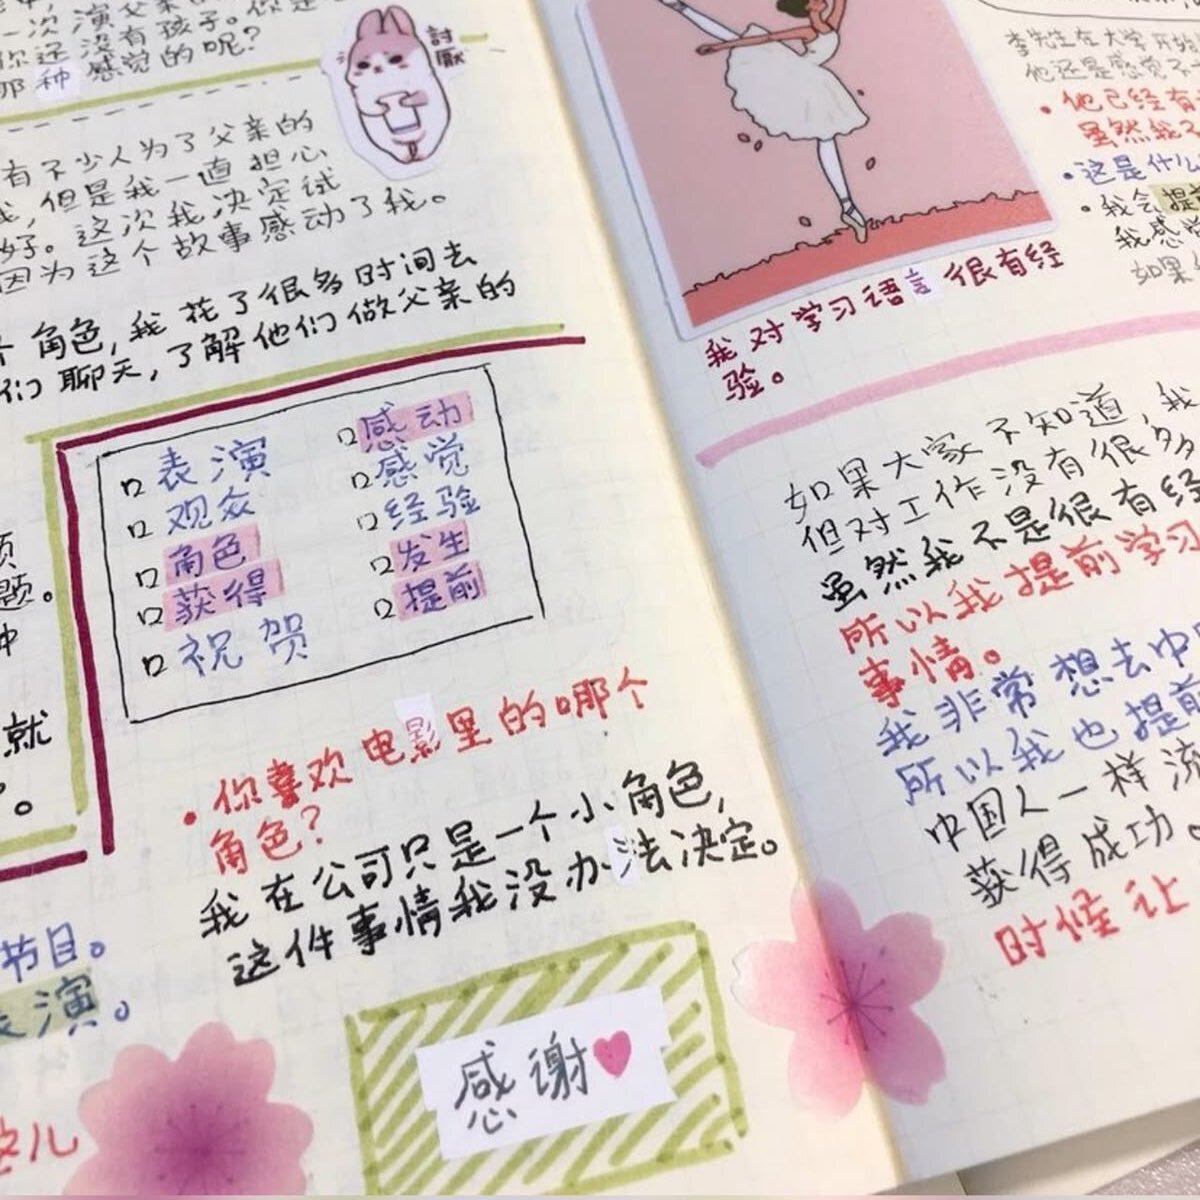 一次演父亲
你还没有孩子。你是
那种感觉的呢？
討厭
有不少人为了父亲的
我，但是我一直担心
好。这次我决定试
因为这个故事感动了我。
个角色，我花了很多时间去
们聊天，了解他们做父亲的
题。
就
节目。
表演。
这儿
表演
观众
角色
获得
祝贺
感动
感觉
经验
发生
提前
•你喜欢电影里的哪个
角色？
我在公司只是一个小角色，
这件事情我没办法决定。
感谢
李先生在大学开始
他还是感觉不
•他已经有
虽然我不
•这是什么
•我会提前
我感觉
如果
我对学习语言很有经
验。
如果大家不知道，我
但对工作没有很多
虽然我不是很有经
所以我提前学习
事情。
我非常想去中国
所以我也提前
中国人一样流
获得成功。
时候让